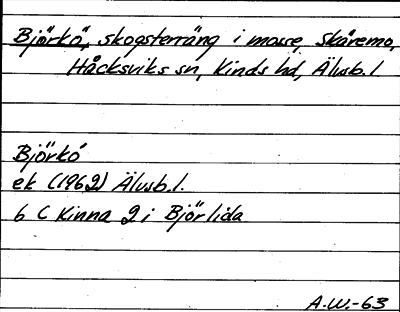 Björkö, skogsterräng i mosse, Skåremo,
Håcksviks sn, Kinds hd, Älvsb. l
Björkö
ek (1962) Älvsb. l.
6 C Kinna 2 i Björlida
A.W.-63